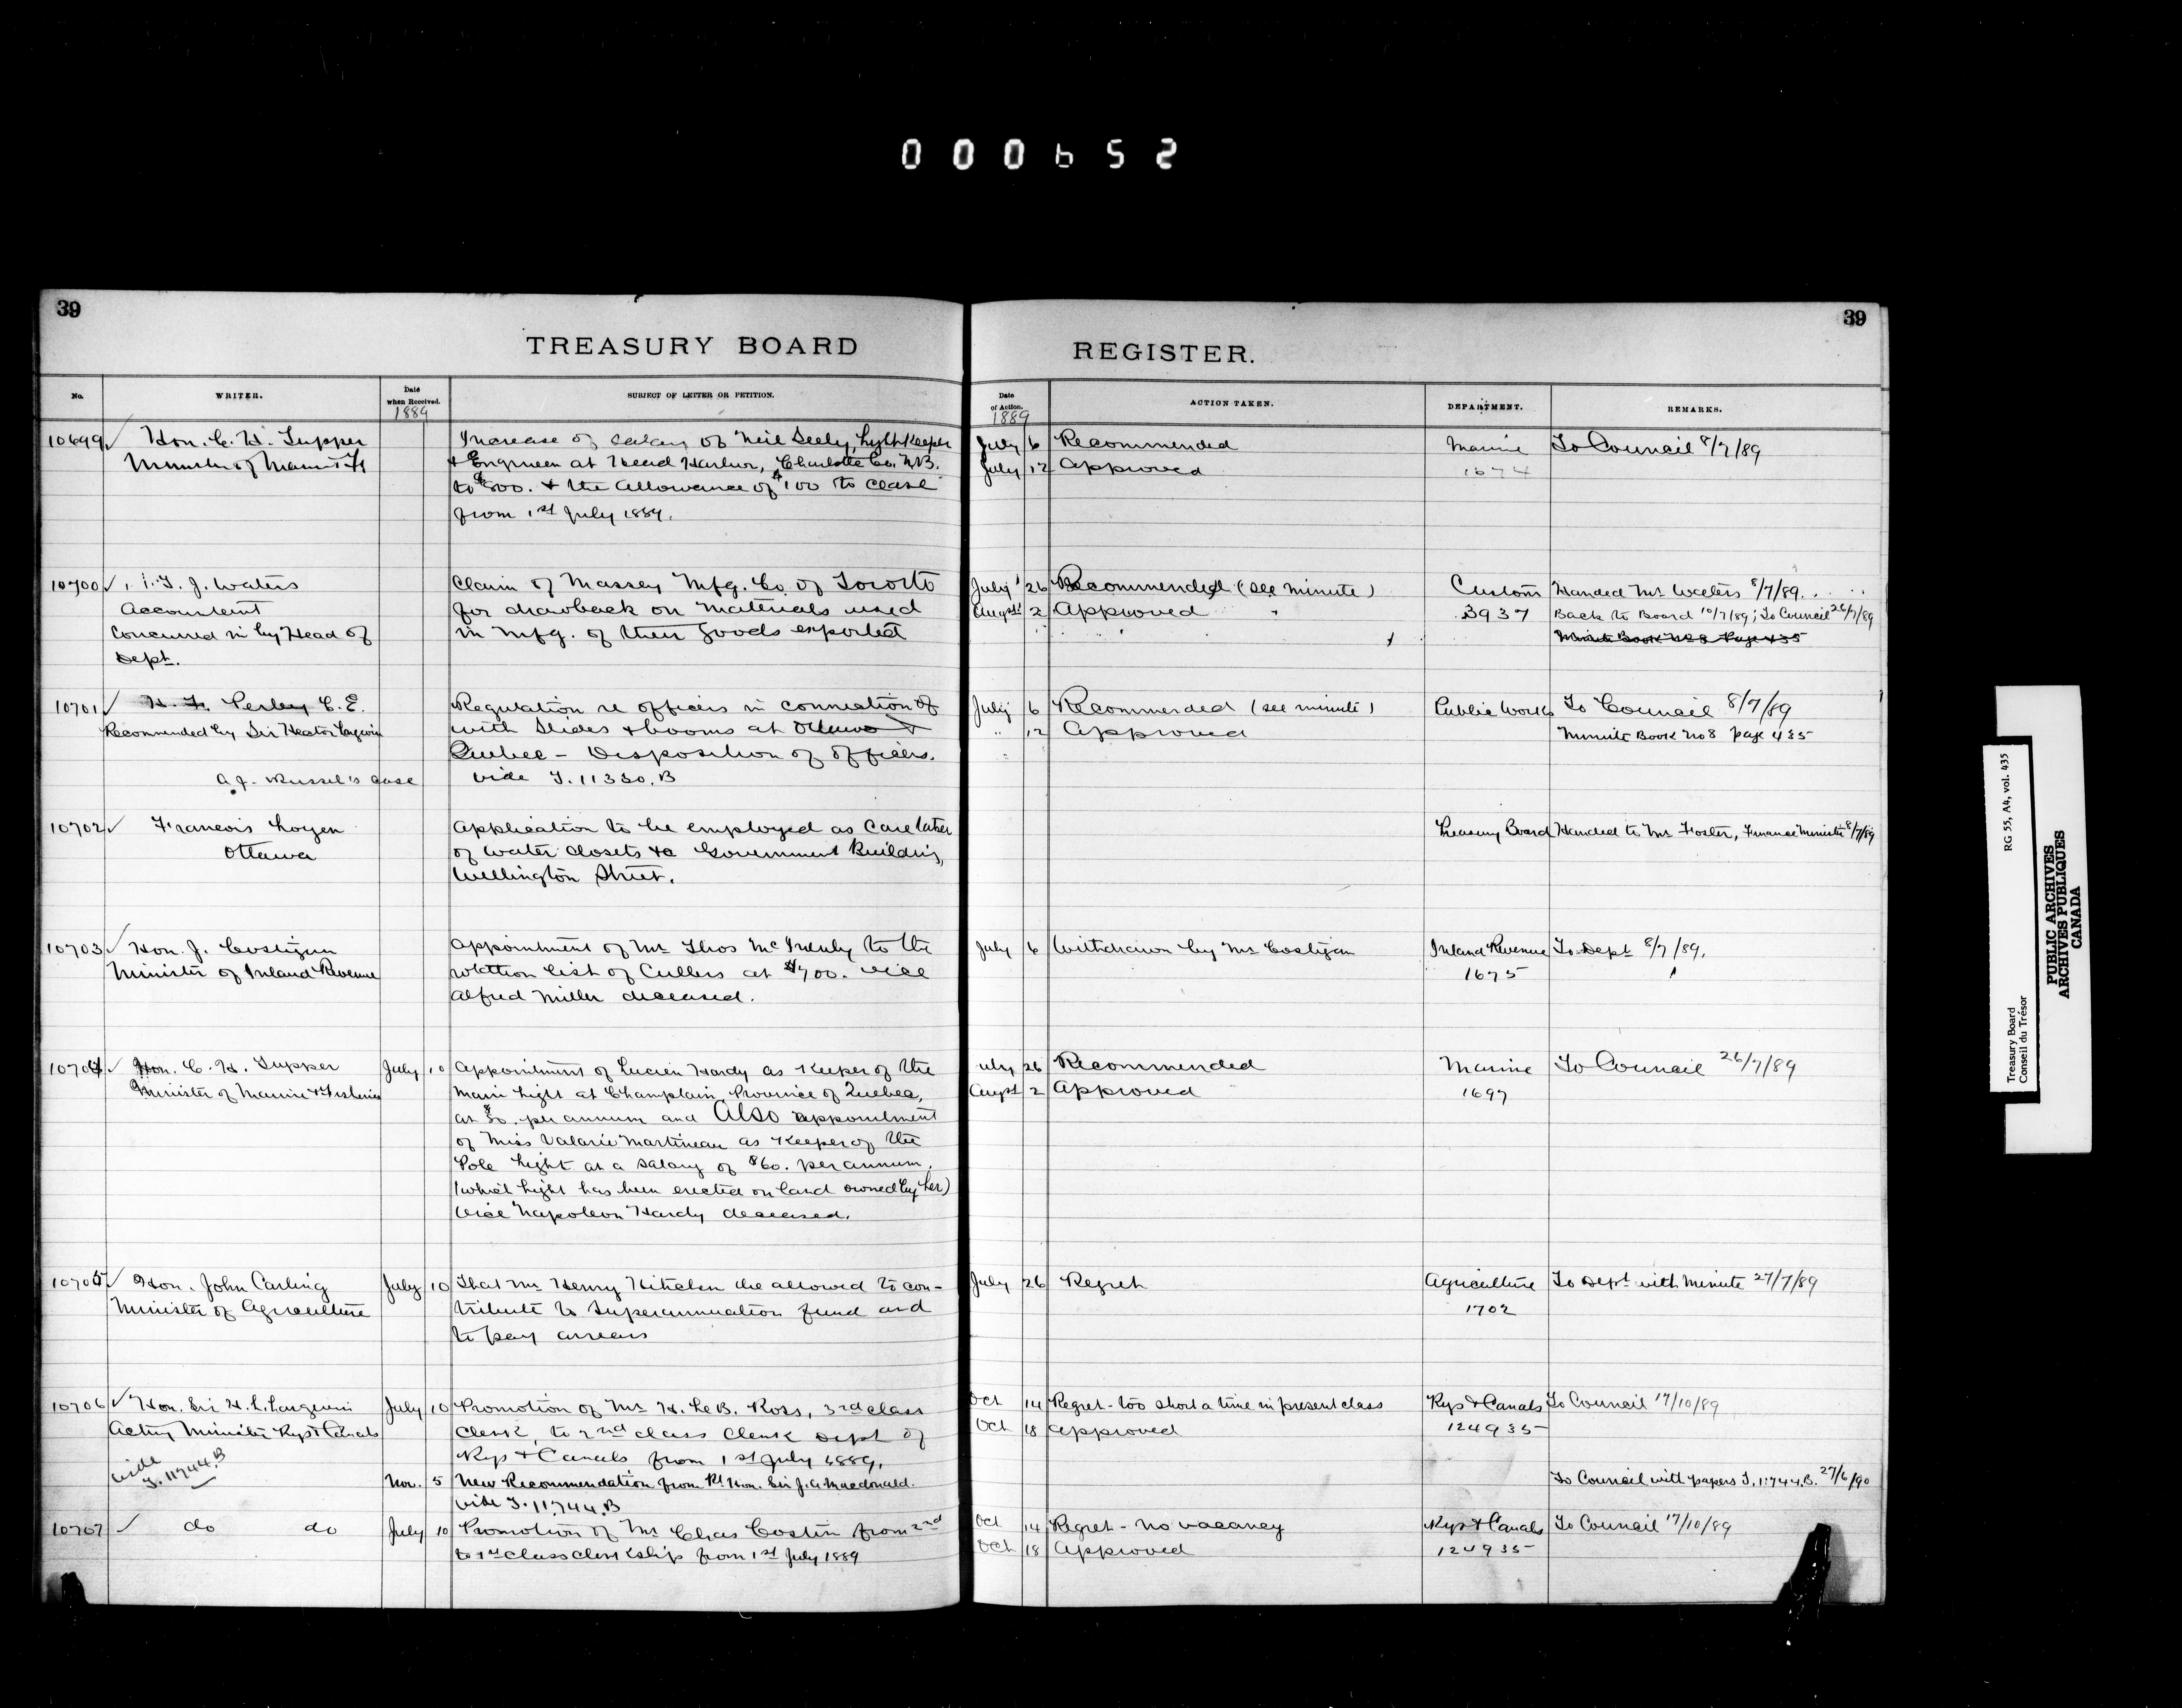 000652
39
39
TREASURY BOARD
REGISTER.
No.
WRITER.
Date when Received.
1889
SUBJECT OF LETTER OR PETITION.
Date of Action.
1889
ACTION TAKEN.
DEPARTMENT.
REMARKS.
10699 Hon. C. H. Tupper
Minister of Marine & Fs
Increase of salary of Neil Seely, Lightkeeper
& Engineer at Head Harbor, Charlotte Co. N.B.
to $500. & the allowance of $100 to cease
from 1st July 1889.
July 6 Recommended
July 12 Approved
Marine
1674
To Council 8/7/89
10700 T. J. Watters
Accountant
Concurred in by Head of
Dept.
Claim of Massey Mfg. Co. of Toronto
for drawback on materials used
in mfg. of their goods exported
July 26 Recommended (see minute)
Augst 2 Approved
Customs
3937
Handed Mr Watters 8/7/89.
Back to Board 10/7/89; To Council 26/7/89
Minute Book No 8 Page 435
10701 H. F. Perley C. E.
Recommended by Sir Hector Langevin
A. J. Russel's case
Regulation re officers in connection of
with Slides & booms at Ottawa &
Quebec - Disposition of officers.
vide T. 11330. B
July 6 Recommended (see minute)
" 12 Approved
Public Works
To Council 8/7/89
Minute Book No 8 page 435
10702 Francois Loyer
Ottawa
Application to be employed as Care taker
of water closets &c Government Buildings,
Wellington Street.
Treasury Board
Handed to Mr Foster, Finance Minister 8/7/89
10703 Hon. J. Costigan
Minister of Inland Revenue
Appointment of Mr Thos to the
list of Cullers at $700. vice
Alfred Miller deceased.
July 6 Withdrawn by Mr Costigan
Inland Revenue
1675
To Dept 8/7/89.
10704 Hon. C. H. Tupper
Minister of Marine & Fisheries
July 10
Appointment of Lucien Hardy as Keeper of the
Main Light at Champlain, Province of Quebec,
at per annum and Also appointment
of Miss Valarie Martineau as Keeper of the
Pole Light at a salary of $60. per annum,
(which Light has been erected on land owned by her)
vice Napoleon Hardy deceased.
July 26 Recommended
Augst 2 Approved
Marine
1697
To Council 26/7/89
10705 Hon. John Carling
Minister of Agriculture
July 10
That Mr Henry Kitchen be allowed to con-
tribute to Superannuation fund and
to pay arrears
July 26 Regret
Agriculture
1702
To Dept with Minute 27/7/89
10706 Hon. Sir H. L. Langevin
Acting Minister Rys & Canals
vide
T. 11744. B
July 10
Promotion of Mr H. Le B. Ross, 3rd class
Clerk, to 2nd class Clerk Dept of
Rys & Canals from 1st July 1889.
Nov. 5 New Recommendation from Rt Hon. Sir J. A. Macdonald.
vide T. 11,744. B
Oct 14 Regret - too short a time in present class
Oct 18 Approved
Rys & Canals
124935
To Council 17/10/89
To Council with papers T. 11744. B. 27/6/90
10707 do do
July 10
Promotion of Mr Chas Costin from 2nd
to 1st class clerkship from 1st July 1889
Oct 14 Regret - no vacancy
Oct 18 Approved
Rys & Canals
124935
To Council 17/10/89
Treasury Board
Conseil du Trésor
RG 55, A4, vol. 435
PUBLIC ARCHIVES
ARCHIVES PUBLIQUES
CANADA